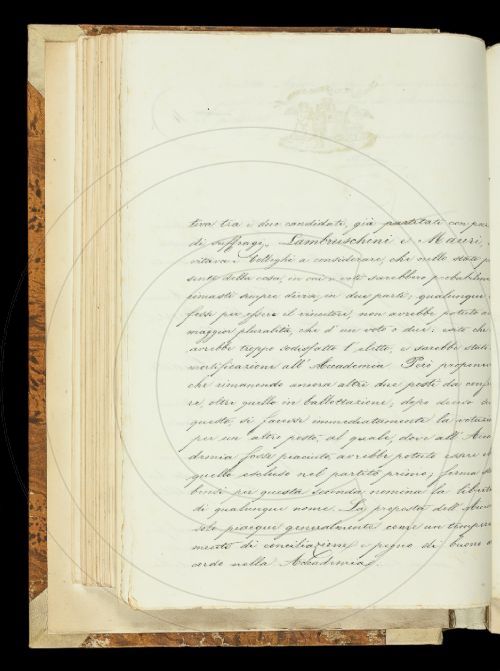 tiva tra i due candidati, già partitati con pari
di suffragj, Lambruschini e Mauri,
vitava i Colleghi a considerare, che nello stato
sente della cosa, in cui i voti sarebbero probabilmen
rimasti sempre divisi in due parti; qualunque
fosse per essere il vincitore, non avrebbe potuto
maggior pluralità, che d'un voto o due: esito che
avrebbe troppo sodisfatto l'eletto, e sarebbe stato
mortificazione all'Accademia. Però proponeva
che rimanendo ancora altri due posti da confe
re, oltre quello in ballottazione; dopo deciso
questo, si facesse immediatamente la votazio
per un altro posto, al quale, dove all'Acca
demia fosse piaciuto, avrebbe potuto essere
quello escluso nel partito primo; ferma
bensì per questa seconda nomina la libertà
di qualunque nome. La proposta dell'Arci
solo piacque generalmente come un tempera
mento di conciliazione e pegno di buono
cordo nella Accademia.